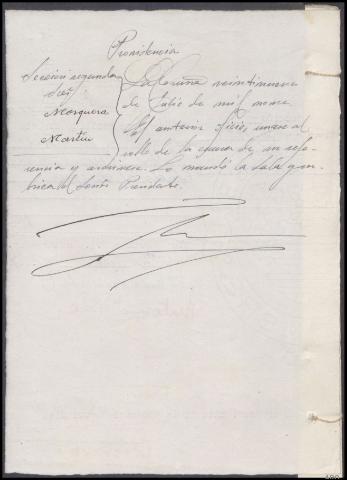 Providencia
Sección segunda
Mosquera
Martin
La Coruña veintinueve
de Julio de mil nove
El anterior oficio, unase al
rollo de la causa de su refe-
rencia y archivese. Lo mandó la Sala y ru-
brica el Señor Presidente.